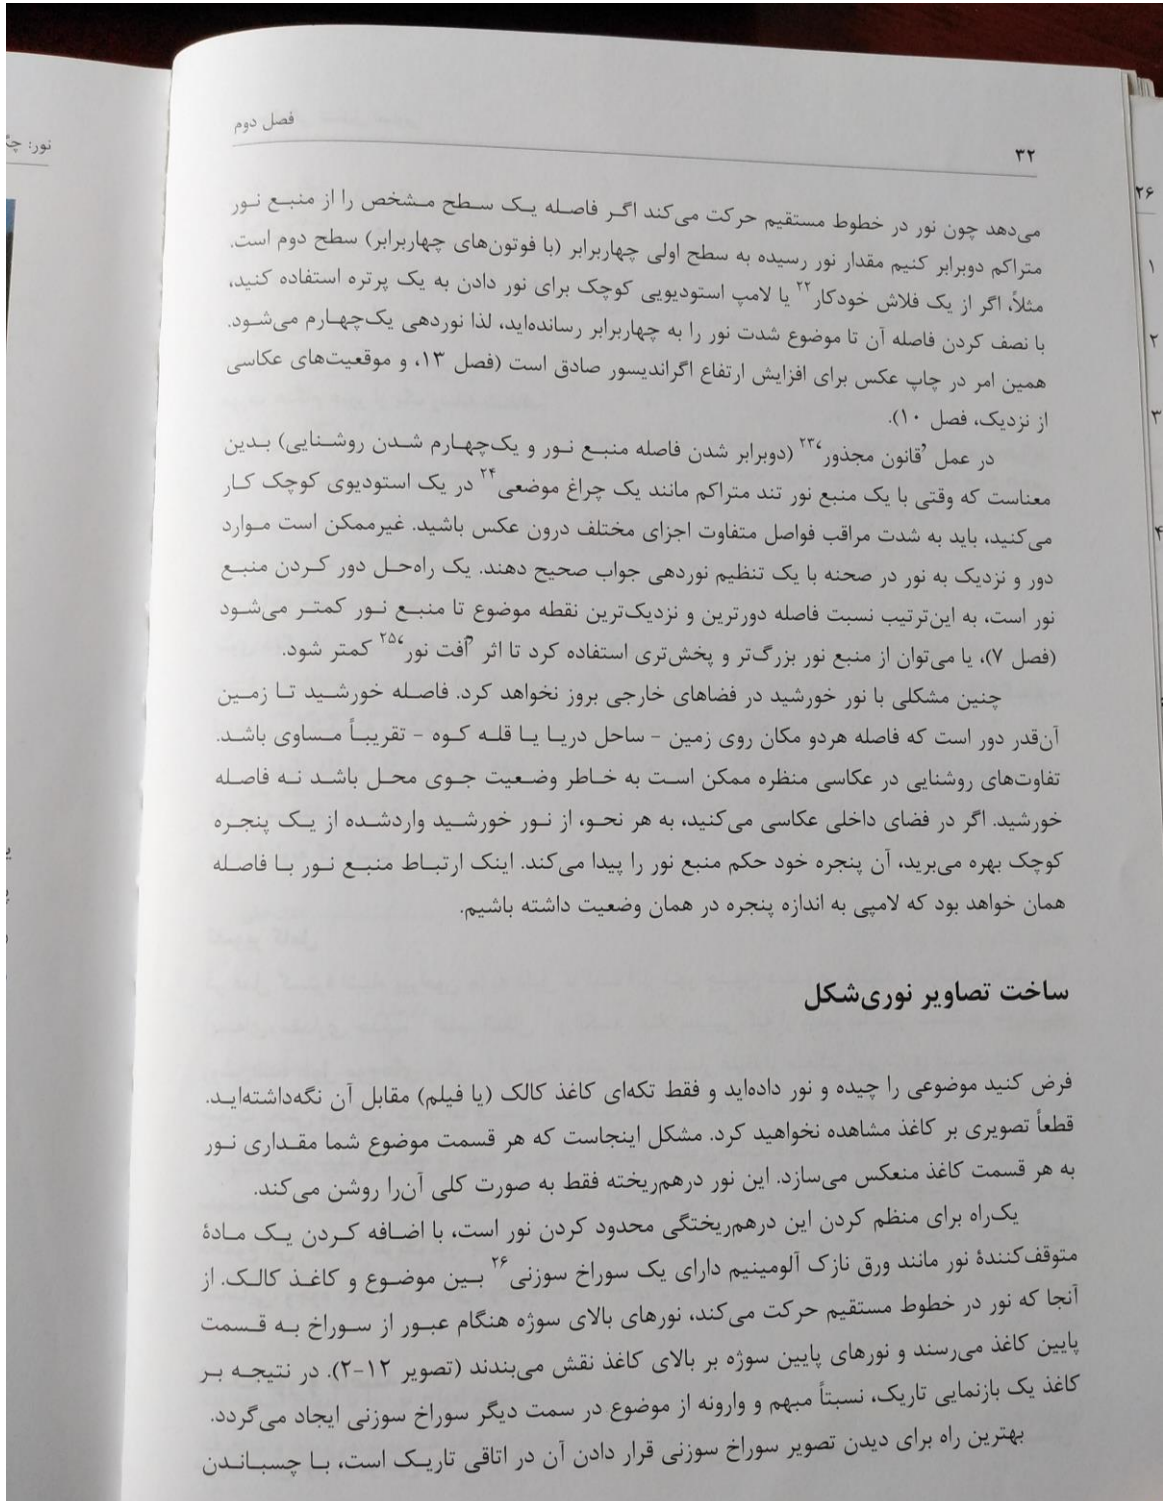 فصل دوم
۳۲
می‌دهد چون نور در خطوط مستقیم حرکت می‌کند اگر فاصله یک سطح مشخص را از منبع نور
متراکم دوبرابر کنیم مقدار نور رسیده به سطح اولی چهاربرابر (با فوتون‌های چهاربرابر) سطح دوم است.
مثلاً، اگر از یک فلاش خودکار۲۲ یا لامپ استودیویی کوچک برای نور دادن به یک پرتره استفاده کنید،
با نصف کردن فاصله آن تا موضوع شدت نور را به چهاربرابر رسانده‌اید، لذا نوردهی یک‌چهارم می‌شود.
همین امر در چاپ عکس برای افزایش ارتفاع اگراندیسور صادق است (فصل ۱۳، و موقعیت‌های عکاسی
از نزدیک، فصل ۱۰).
در عمل ‘قانون مجذور’۲۳ (دوبرابر شدن فاصله منبع نور و یک‌چهارم شدن روشنایی) بدین
معناست که وقتی با یک منبع نور تند متراکم مانند یک چراغ موضعی۲۴ در یک استودیوی کوچک کار
می‌کنید، باید به شدت مراقب فواصل متفاوت اجزای مختلف درون عکس باشید. غیرممکن است موارد
دور و نزدیک به نور در صحنه با یک تنظیم نوردهی جواب صحیح دهند. یک راه‌حل دور کردن منبع
نور است، به این‌ترتیب نسبت فاصله دورترین و نزدیک‌ترین نقطه موضوع تا منبع نور کمتر می‌شود
(فصل ۷)، یا می‌توان از منبع نور بزرگ‌تر و پخش‌تری استفاده کرد تا اثر ‘اُفت نور’۲۵ کمتر شود.
چنین مشکلی با نور خورشید در فضاهای خارجی بروز نخواهد کرد. فاصله خورشید تا زمین
آن‌قدر دور است که فاصله هردو مکان روی زمین - ساحل دریا یا قله کوه - تقریباً مساوی باشد.
تفاوت‌های روشنایی در عکاسی منظره ممکن است به خاطر وضعیت جوی محل باشد نه فاصله
خورشید. اگر در فضای داخلی عکاسی می‌کنید، به هر نحو، از نور خورشید واردشده از یک پنجره
کوچک بهره می‌برید، آن پنجره خود حکم منبع نور را پیدا می‌کند. اینک ارتباط منبع نور با فاصله
همان خواهد بود که لامپی به اندازه پنجره در همان وضعیت داشته باشیم.
ساخت تصاویر نوری‌شکل
فرض کنید موضوعی را چیده و نور داده‌اید و فقط تکه‌ای کاغذ کالک (یا فیلم) مقابل آن نگه‌داشته‌اید.
قطعاً تصویری بر کاغذ مشاهده نخواهید کرد. مشکل اینجاست که هر قسمت موضوع شما مقداری نور
به هر قسمت کاغذ منعکس می‌سازد. این نور درهم‌ریخته فقط به صورت کلی آن‌را روشن می‌کند.
یک‌راه برای منظم کردن این درهم‌ریختگی محدود کردن نور است، با اضافه کردن یک مادهٔ
متوقف‌کنندهٔ نور مانند ورق نازک آلومینیم دارای یک سوراخ سوزنی۲۶ بین موضوع و کاغذ کالک. از
آنجا که نور در خطوط مستقیم حرکت می‌کند، نورهای بالای سوژه هنگام عبور از سوراخ به قسمت
پایین کاغذ می‌رسند و نورهای پایین سوژه بر بالای کاغذ نقش می‌بندند (تصویر ۱۲-۲). در نتیجه بر
کاغذ یک بازنمایی تاریک، نسبتاً مبهم و وارونه از موضوع در سمت دیگر سوراخ سوزنی ایجاد می‌گردد.
بهترین راه برای دیدن تصویر سوراخ سوزنی قرار دادن آن در اتاقی تاریک است، با چسباندن
نور:
۲۶
۱
۲
۳
۴